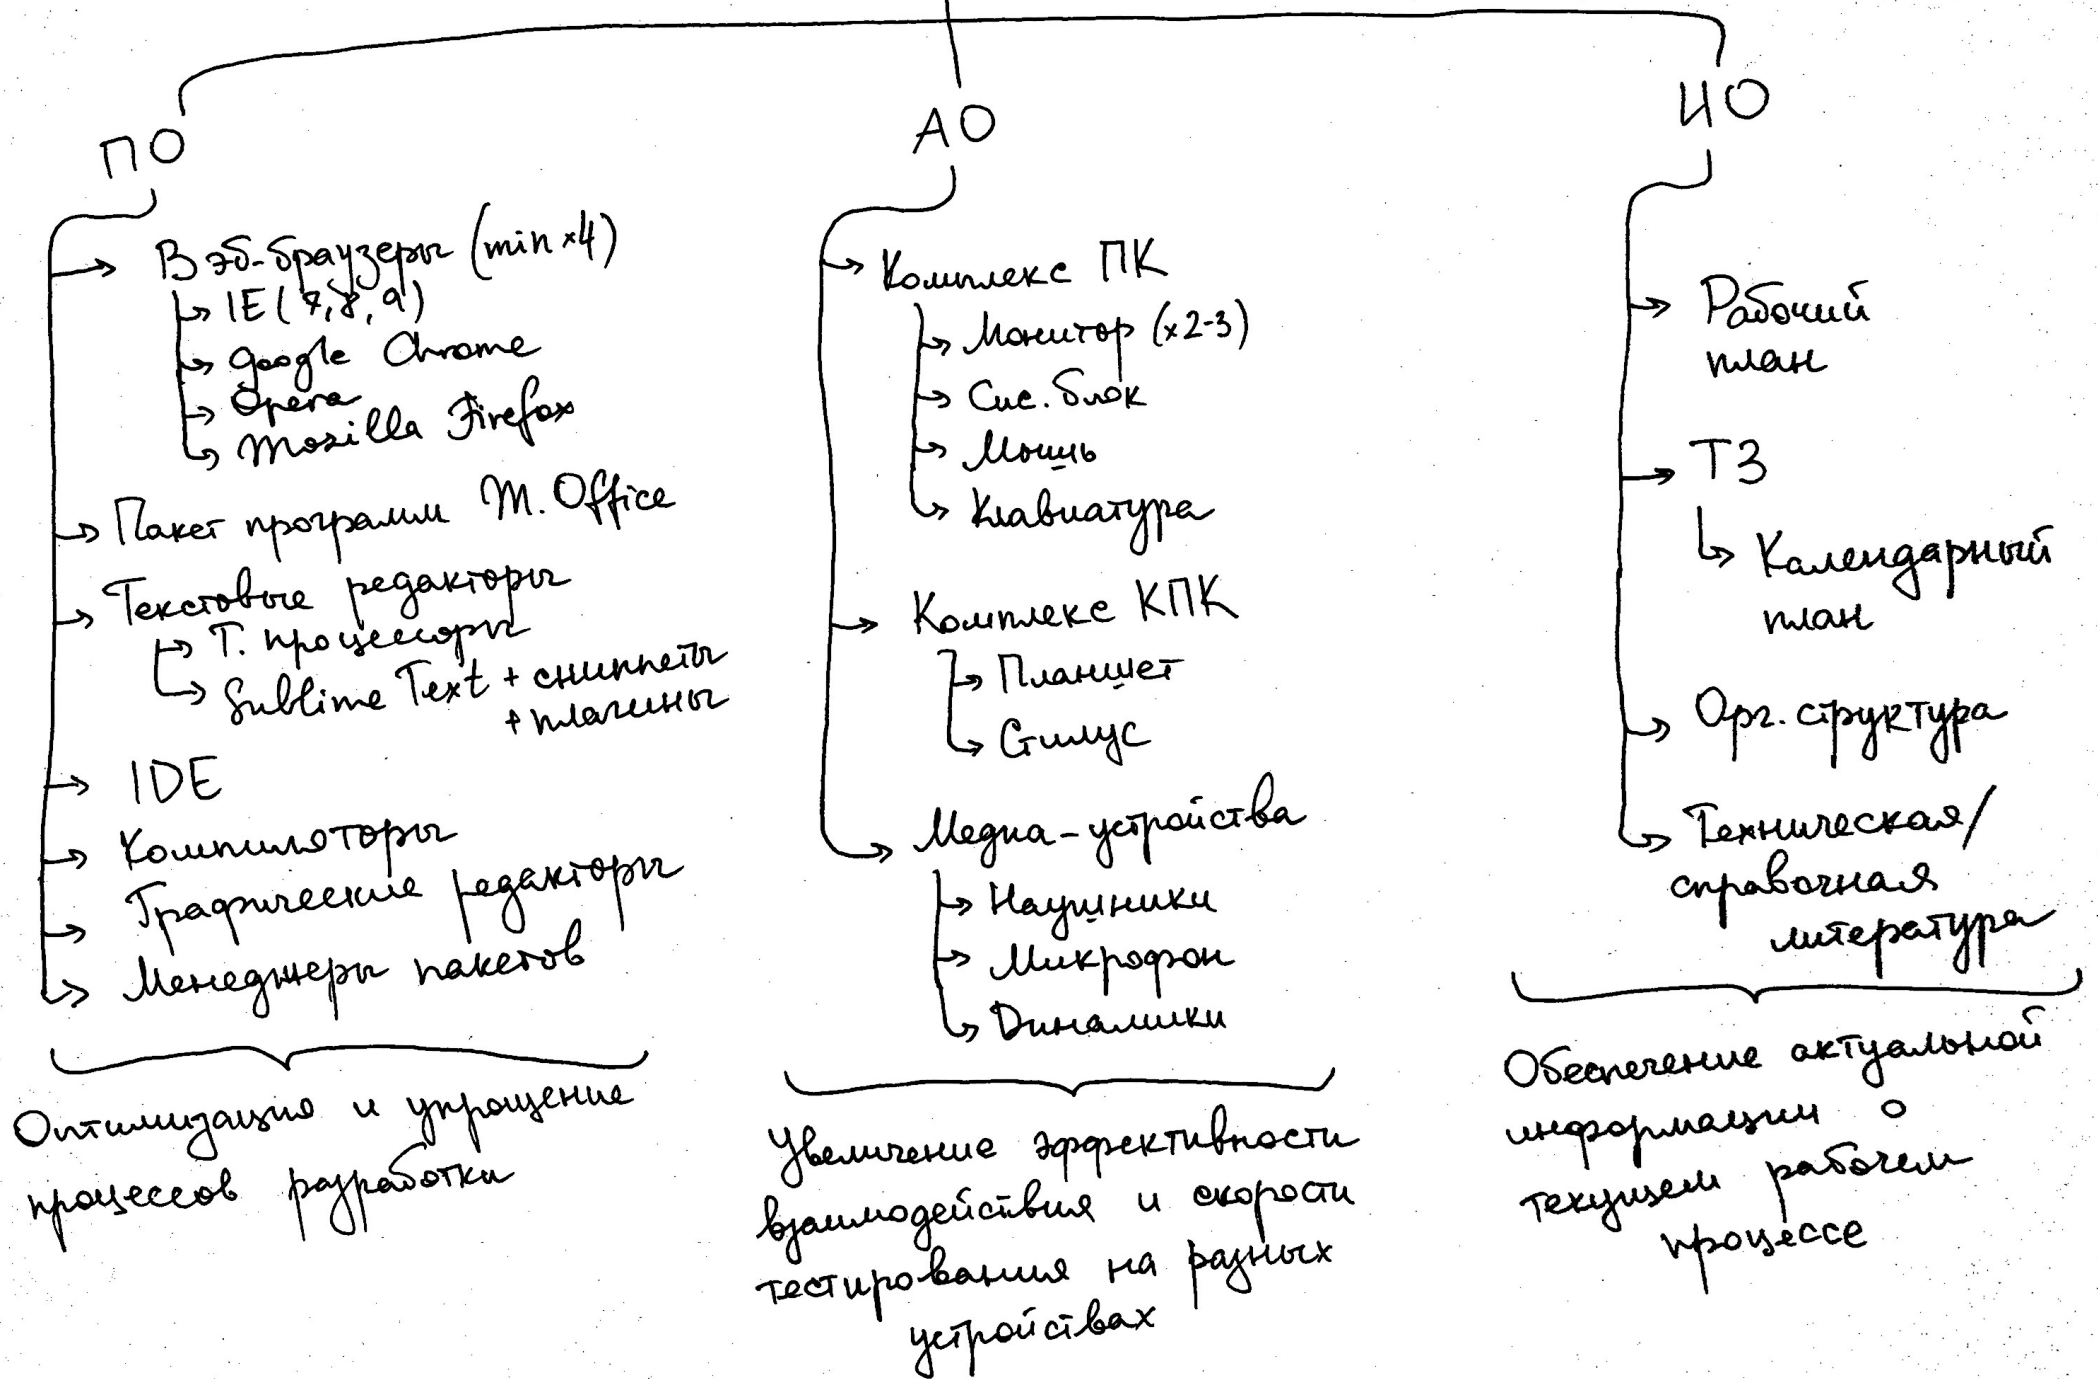 ПО
Вэб-браузеры (min ×4)
IE (7, 8, 9)
Google Chrome
Opera
Mozilla Firefox
Пакет программ M. Office
Текстовые редакторы
Т. процессоры
Sublime Text + сниппеты
+ плагины
IDE
Компиляторы
Графические редакторы
Менеджеры пакетов
Оптимизация и упрощение
процессов разработки
АО
Комплекс ПК
Монитор (×2-3)
Сис. блок
Мышь
Клавиатура
Комплекс КПК
Планшет
Стилус
Медиа-устройства
Наушники
Микрофон
Динамики
Увеличение эффективности
взаимодействия и скорости
тестирования на разных
устройствах
ИО
Рабочий
план
ТЗ
Календарный
план
Орг. структура
Техническая/
справочная
литература
Обеспечение актуальной
информации о
текущем рабочем
процессе